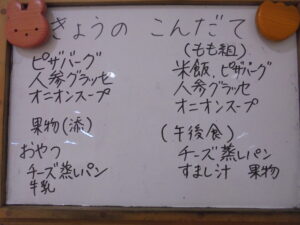 きょうの こんだて
ピザバーグ
人参グラッセ
オニオンスープ
果物(添)
おやつ
チーズ蒸しパン
牛乳
(もも組)
米飯、ピザバーグ
人参グラッセ
オニオンスープ
(午後食)
チーズ蒸しパン
すまし汁 果物